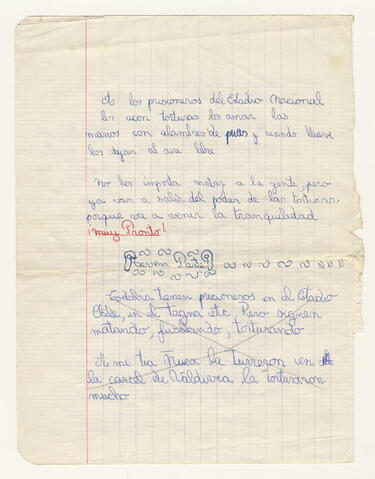 A los prisioneros del Estadio Nacional
les acen torturas les amar las
manos con alambres de puas y cuando llueve
los dejan al aire libre
No les importa matar a la gente, pero
ya van a salir del poder de las torturas,
porque va a venir la tranquilidad
¡muy Pronto!
Todabia tienen prisioneros en el Estadio
Chile, en el tagna etc. Pero siguen
matando, fusilando, torturando
A mi tia Nueca la tuvieron en
la carcel de Valdivia la torturaron
mucho